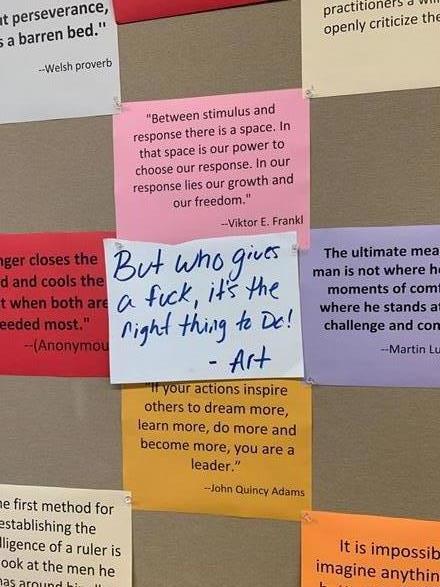 t perseverance,
s a barren bed."
--Welsh proverb
practitioners a
openly criticize the
"Between stimulus and
response there is a space. In
that space is our power to
choose our response. In our
response lies our growth and
our freedom."
--Viktor E. Frankl
nger closes the
d and cools the
t when both are
eeded most."
--(Anonymou
But who gives
a fuck, it's the
right thing to Do!
- Art
The ultimate mea
man is not where h
moments of com
where he stands a
challenge and con
--Martin Lu
"If your actions inspire
others to dream more,
learn more, do more and
become more, you are a
leader."
--John Quincy Adams
e first method for
establishing the
lligence of a ruler is
ook at the men he
has around
It is impossib
imagine anythin